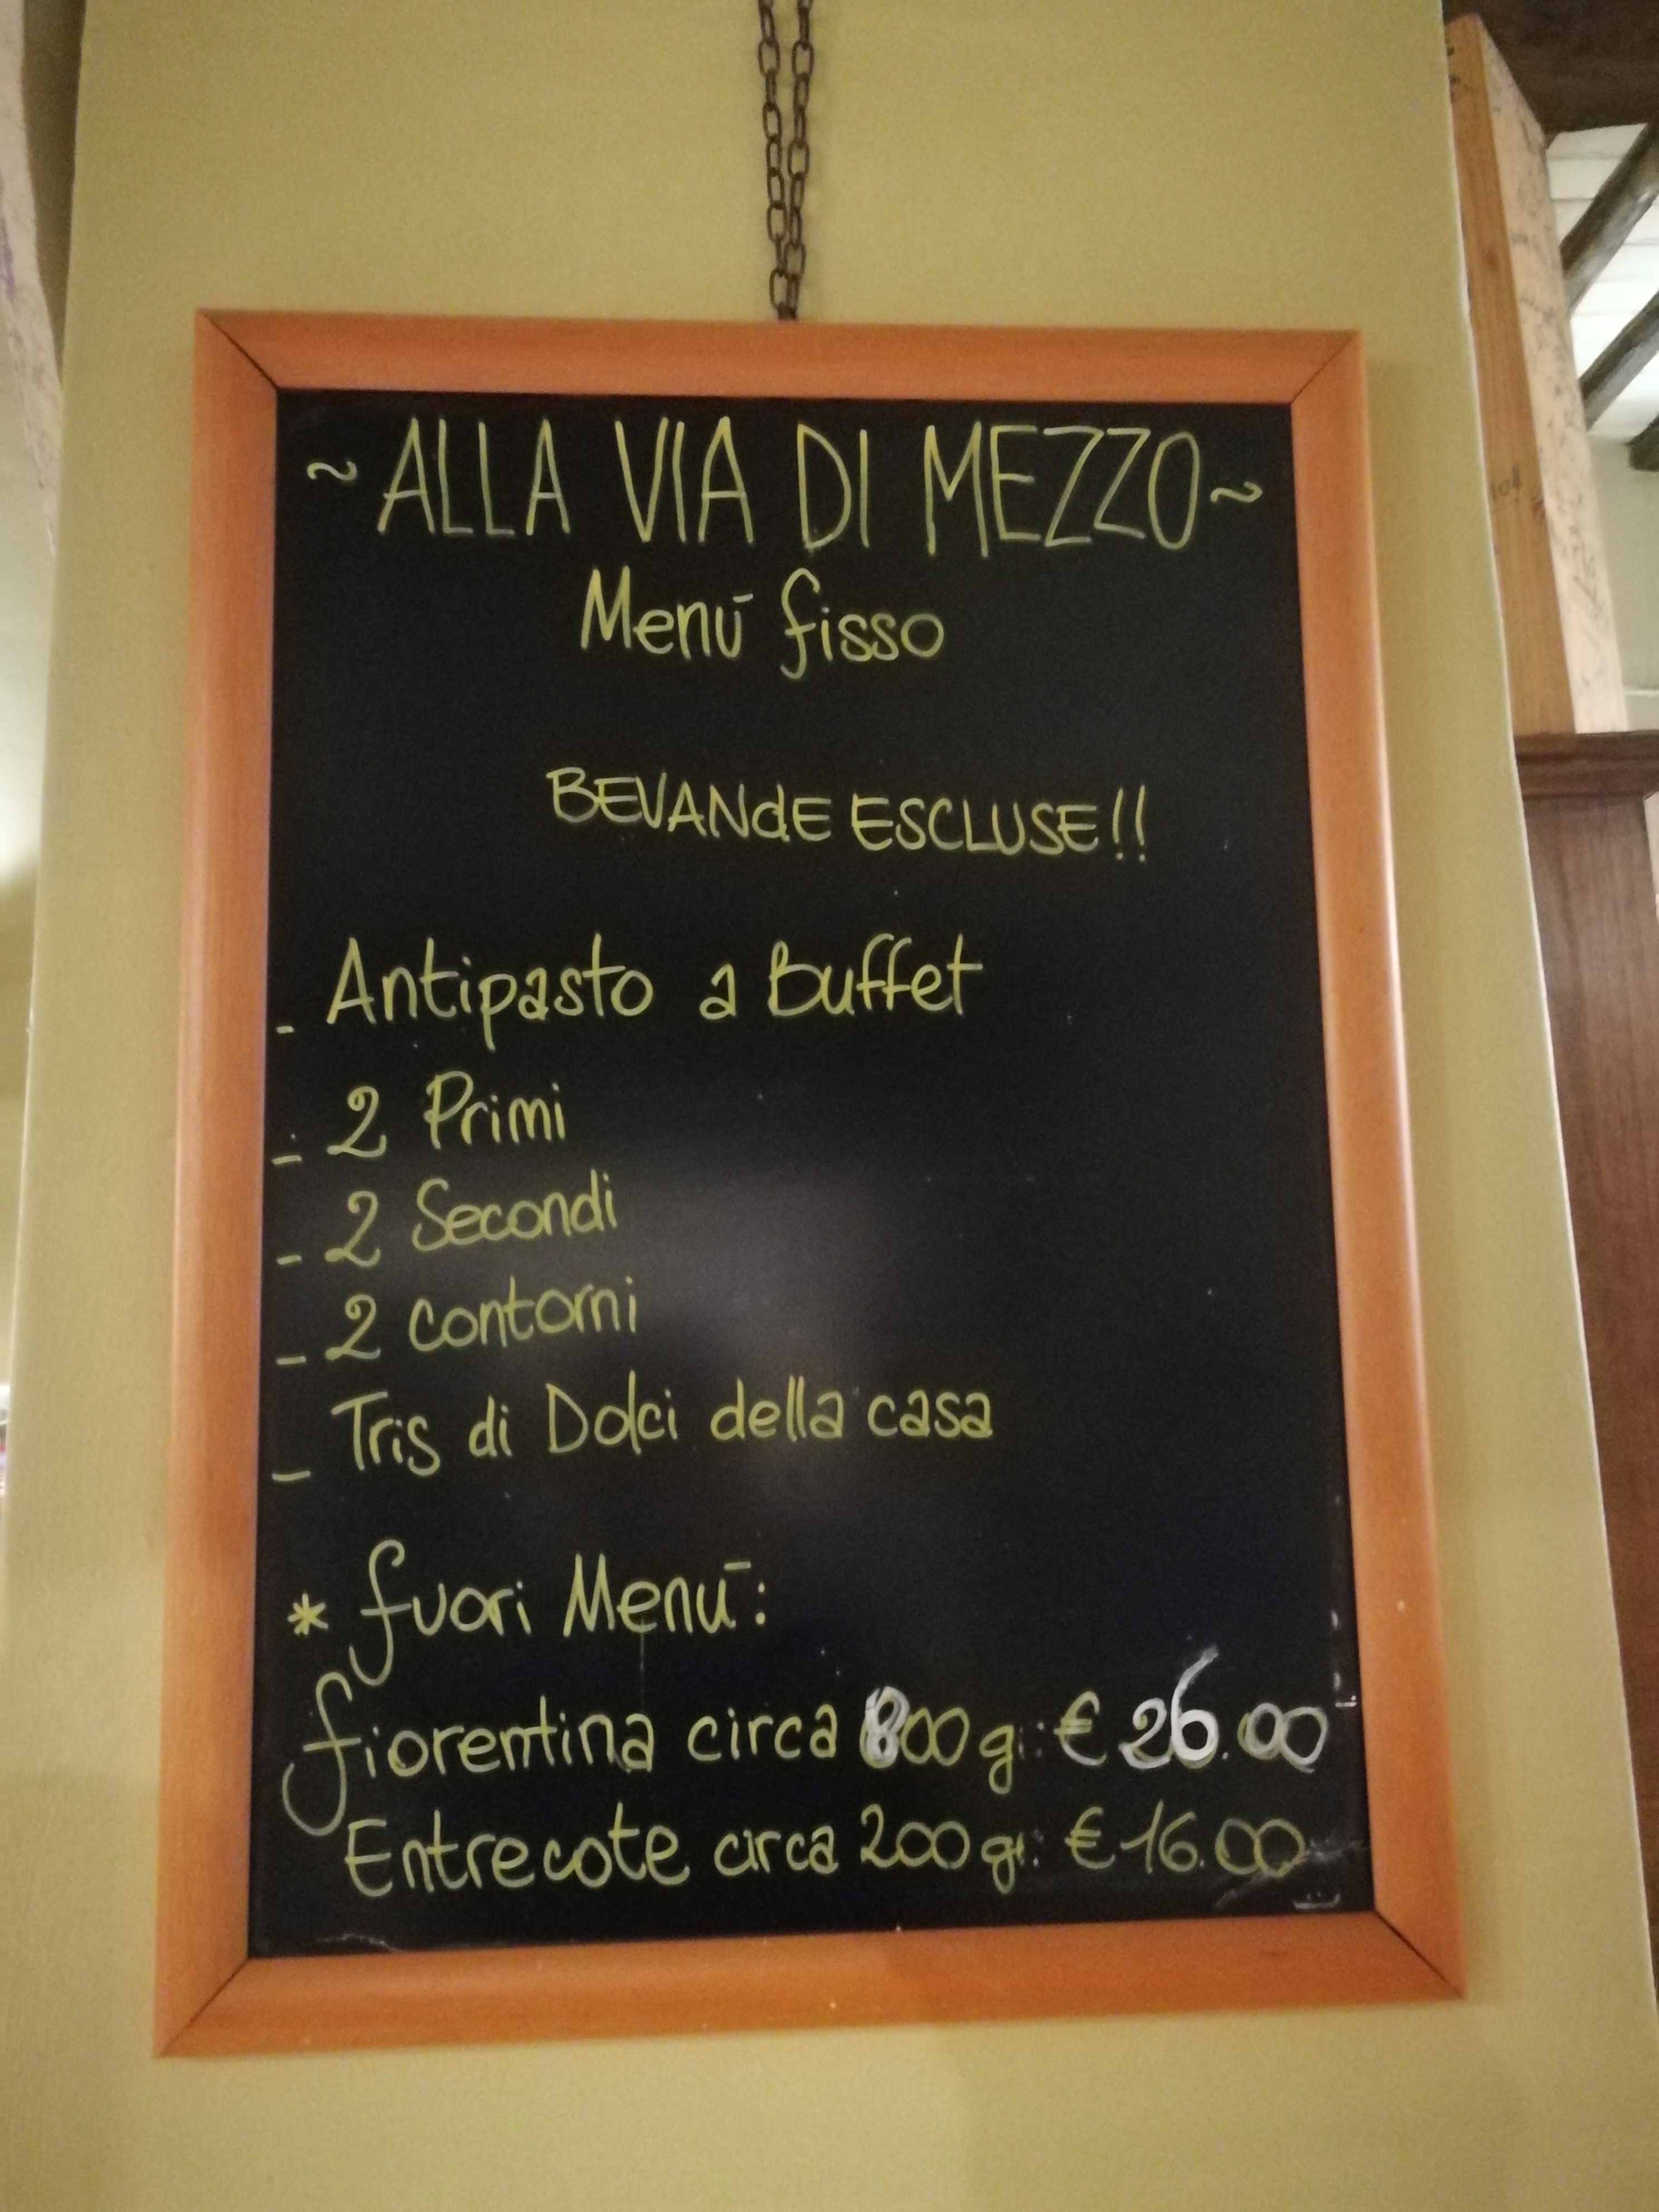 ~ ALLA VIA DI MEZZO ~
Menū fisso
BEVANdE ESCLUSE!!
- Antipasto a Buffet
- 2 Primi
- 2 Secondi
- 2 contorni
- Tris di Dolci della casa
* fuori Menū:
fiorentina circa 800 g: € 26.00
Entrecote circa 200 g: € 16.00